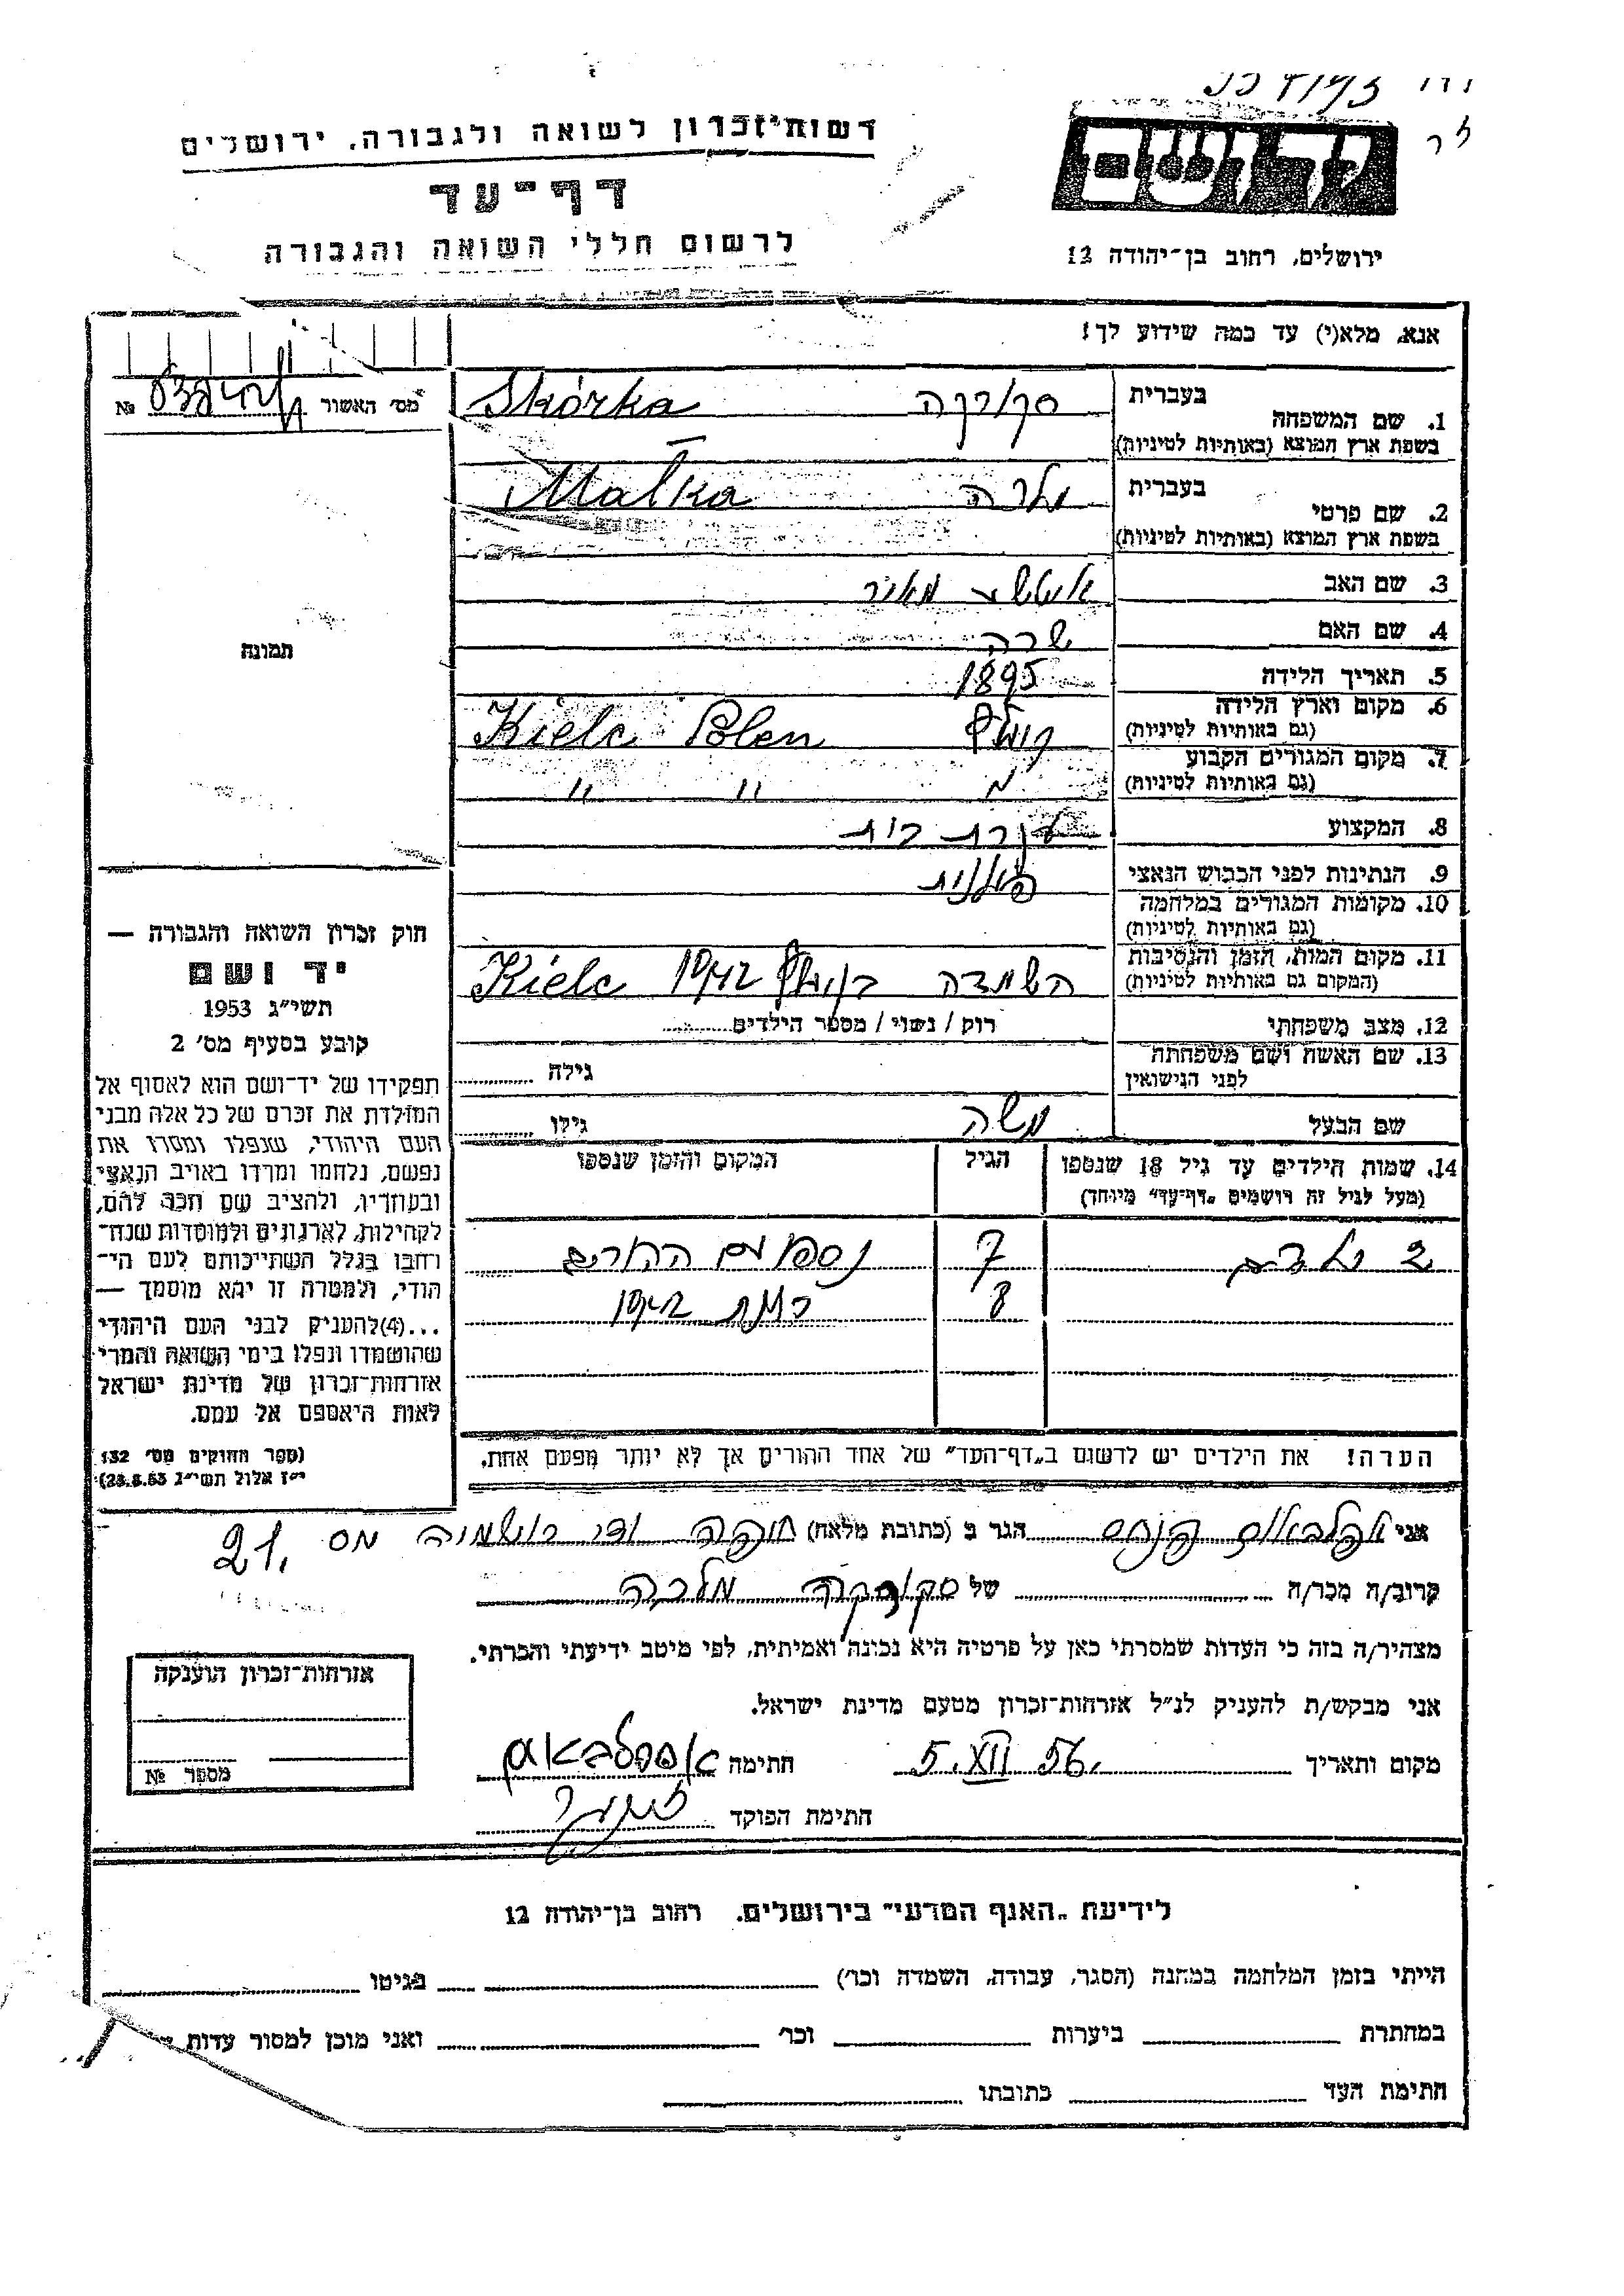 רשות־זכרון לשואה ולגבורה, ירושלים
דף־עד
לרשום חללי השואה והגבורה
ירושלים, רחוב בן־יהודה 12
אנא, מלא(י) עד כמה שידוע לך!
מס׳ האשור №
1. שם המשפחה בעברית סקורקה
בשפת ארץ המוצא (באותיות לטיניות) Skórka
2. שם פרטי בעברית מלכה
בשפת ארץ המוצא (באותיות לטיניות) Malka
3. שם האב מאיר
4. שם האם שרה
5. תאריך הלידה 1895
6. מקום וארץ הלידה (גם באותיות לטיניות) קילץ Kielc Polen
7. מקום המגורים הקבוע (גם באותיות לטיניות) " " "
8. המקצוע עקרת בית
9. הנתינות לפני הכבוש הנאצי פולנית
10. מקומות המגורים במלחמה (גם באותיות לטיניות)
11. מקום המות, הזמן והנסיבות (המקום גם באותיות לטיניות) השמדה בקילץ 1942 Kielc
12. מצב משפחתי רוק / נשוי / מספר הילדים
13. שם האשה ושם משפחתה לפני הנישואין גילה
שם הבעל משה גילו
14. שמות הילדים עד גיל 18 שנספו (מעל לגיל זה רושמים „דף־עד" מיוחד) הגיל המקום והזמן שנספו
2 ילדים 7 נספו עם ההורים
8 בשנת 1942
הערה! את הילדים יש לרשום ב„דף־העד" של אחד ההורים אך לא יותר מפעם אחת.
תמונה
חוק זכרון השואה והגבורה —
יד ושם
תשי״ג 1953
קובע בסעיף מס׳ 2
תפקידו של יד־ושם הוא לאסוף אל
המולדת את זכרם של כל אלה מבני
העם היהודי, שנפלו ומסרו את
נפשם, נלחמו ומרדו באויב הנאצי
ובעוזריו, ולהציב שם וזכר להם,
לקהילות, לארגונים ולמוסדות שנח־
רחבו בגלל השתייכותם לעם הי־
הודי, ולמטרה זו יהא מוסמך —
...(4)להעניק לבני העם היהודי
שהושמדו ונפלו בימי השואה והמרי
אזרחות־זכרון של מדינת ישראל
לאות היאספם אל עמם.
(ספר החוקים מס׳ 132
י״ז אלול תשי״ג 28.8.53)
אני אפלבאום פנחס הגר ב (כתובת מלאה) חיפה ודי רושמיה מס 21.
קרוב/ה מכר/ה של סקורקה מלכה
מצהיר/ה בזה כי העדות שמסרתי כאן על פרטיה היא נכונה ואמיתית, לפי מיטב ידיעתי והכרתי.
אני מבקש/ת להעניק לנ״ל אזרחות־זכרון מטעם מדינת ישראל.
מקום ותאריך 5.XII 56. חתימה אפלבאום
חתימת הפוקד
אזרחות־זכרון הוענקה
מספר №
לידיעת „האגף המדעי" בירושלים. רחוב בן־יהודה 12
הייתי בזמן המלחמה במחנה (הסגר, עבודה, השמדה וכו׳) בגיטו
במחתרת ביערות וכו׳ ואני מוכן למסור עדות
חתימת העד כתובתו